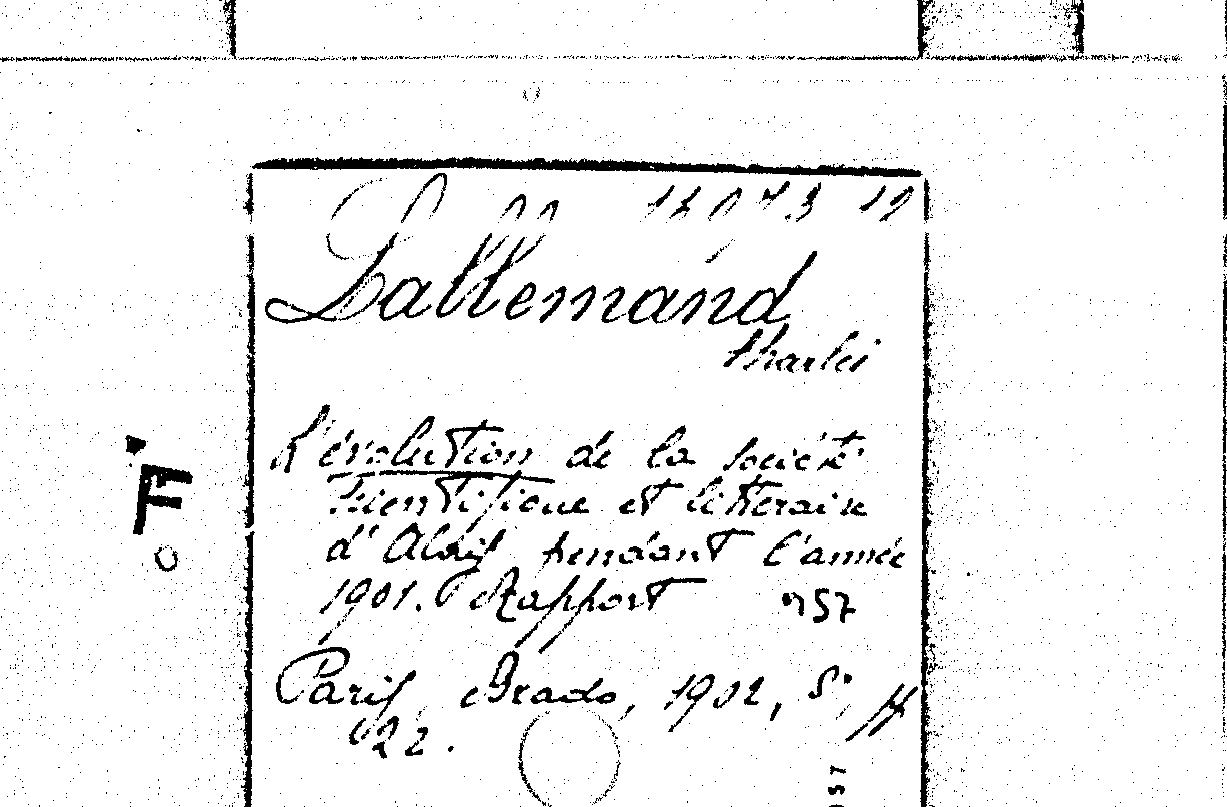 Lallemand
Charles
L'évolution de la société
scientifique et litteraire
d'Alais pendant l'année
1901. Rapport 957
Paris, Prado, 1902, 8°,
22.
F
957